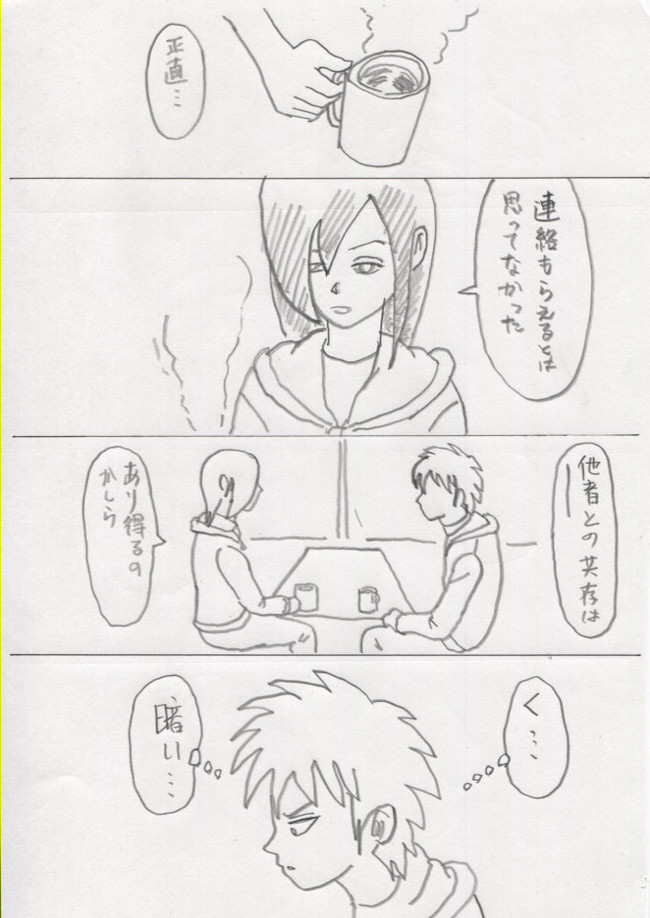 正直…
連絡もらえるとは
思ってなかった
他者との共存は
あり得るの
かしら
く…
暗い…